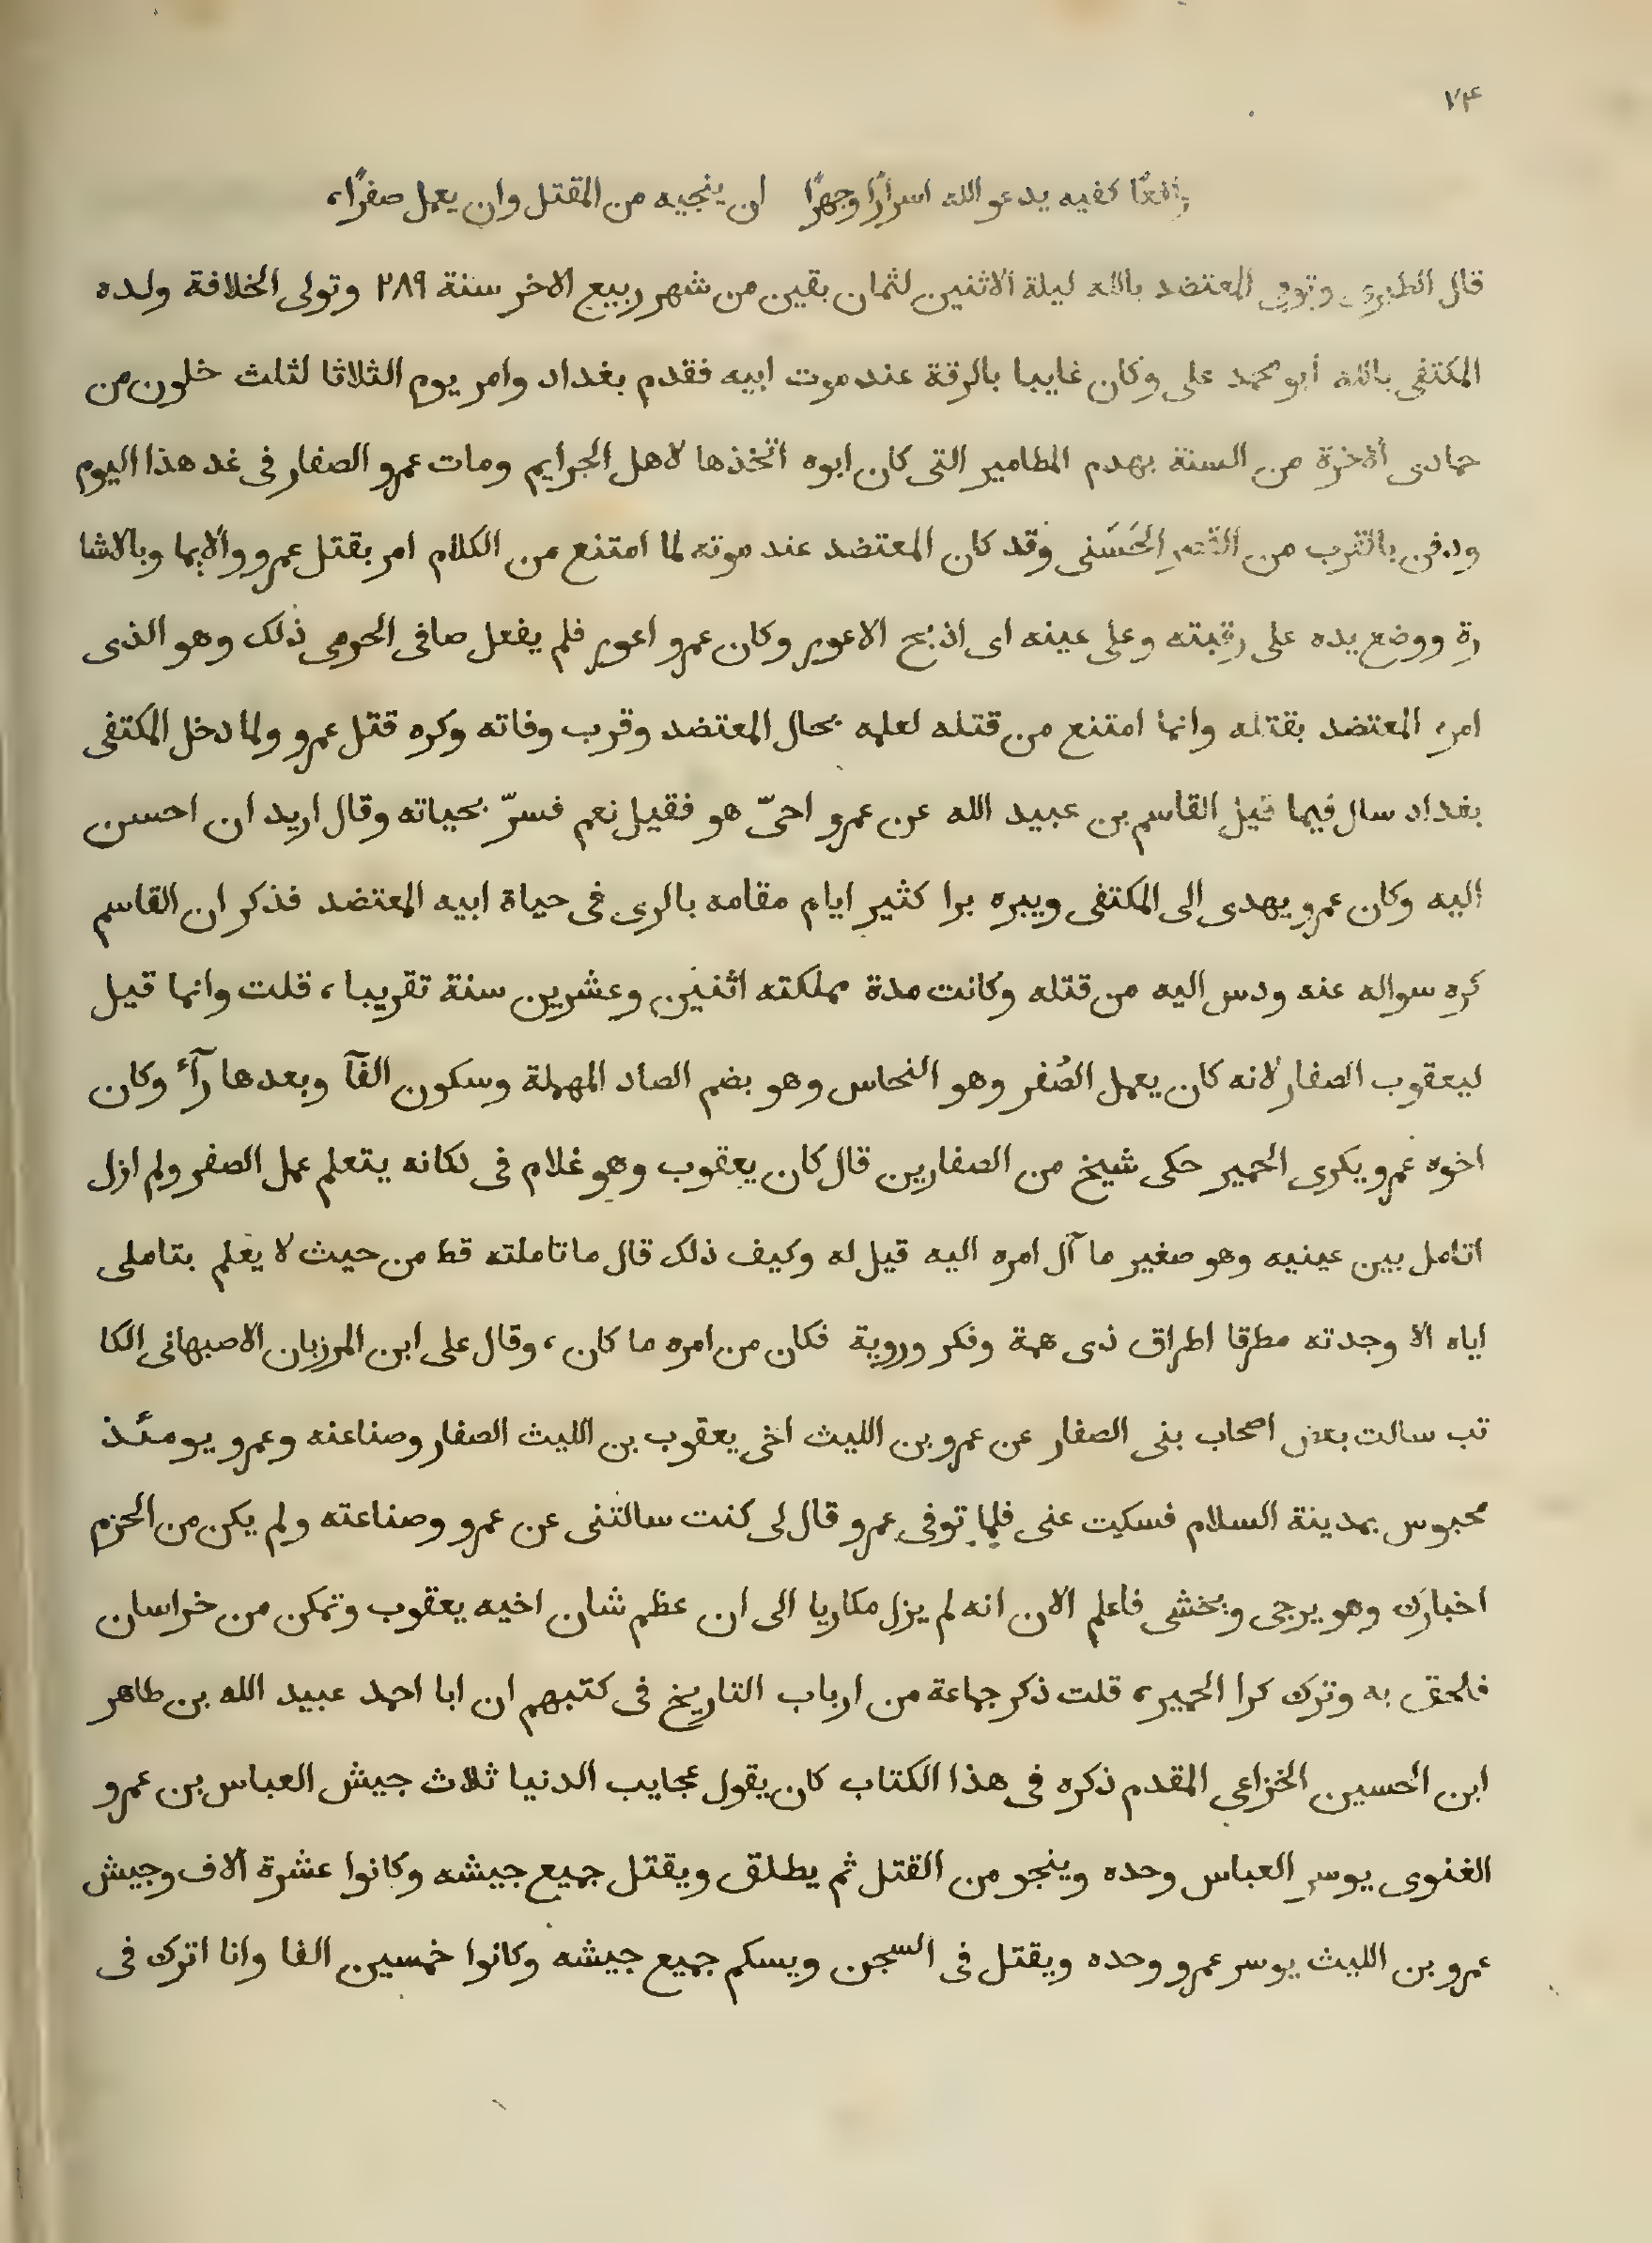 ٧٤
رافعًا كفيه يدعو الله اسرارًا وجهرًا ان ينجيه من المقتل وان يعمل صفرًا،
قال الطبرى وتوفى المعتضد بالله ليلة الاثنين لثمان بقين من شهر ربيع الاخر سنة ٢٨٩ وتولى الخلافة ولده
المكتفى بالله ابو محمد على وكان غايبا بالرقة عند موت ابيه فقدم بغداد وامر يوم الثلاثا لثلث خلون من
جمادى الاخرة من السنة بهدم المطامير التى كان ابوه اتخذها لاهل الجرايم ومات عمرو الصفار فى غد هذا اليوم
ودفن بالقرب من القصر الحَسَنى وقد كان المعتضد عند موته لما امتنع من الكلام امر بقتل عمرو والايما وبالاشا
رة ووضع يده على رقبته وعلى عينه اى اذبح الاعور وكان عمرو اعور فلم يفعل صافى الحرمى ذلك وهو الذى
امره المعتضد بقتله وانما امتنع من قتله لعلمه بحال المعتضد وقرب وفاته وكره قتل عمرو ولما دخل المكتفى
بغداد سال فيما قيل القاسم بن عبيد الله عن عمرو احىّ هو فقيل نعم فسرّ بحياته وقال اريد ان احسن
اليه وكان عمرو يهدى الى المكتفى ويبره برا كثير ايام مقامه بالرى فى حياة ابيه المعتضد فذكر ان القاسم
كره سواله عنه ودس اليه من قتله وكانت مدة مملكته اثنين وعشرين سنة تقريبا، قلت وانما قيل
ليعقوب الصفار لانه كان يعمل الصُفر وهو النحاس وهو بضم الصاد المهملة وسكون الفآ وبعدها رآء وكان
اخوه عمرو يكرى الحمير حكى شيخ من الصفارين قال كان يعقوب وهو غلام فى لكانه يتعلم عمل الصفر ولم ازل
اتامل بين عينيه وهو صغير ما آل امره اليه قيل له وكيف ذلك قال ما تاملته قط من حيث لا يعلم بتاملى
اياه الا وجدته مطرقا اطراق ذى همة وفكر وروية فكان من امره ما كان، وقال على ابن المرزبان الاصبهانى الكا
تب سالت بعض اصحاب بنى الصفار عن عمرو بن الليث اخى يعقوب بن الليث الصفار وصناعنه وعمرو يومئذ
محبوس بمدينة السلام فسكيت عنى فلما توفى عمرو قال لى كنت سالتنى عن عمرو وصناعته ولم يكن من الحزم
اخبارك وهو يرجى ويخشى فاعلم الان انه لم يزل مكاريا الى ان عظم شان اخيه يعقوب وتمكن من خراسان
فلحق به وترك كرا الحمير، قلت ذكر جماعة من ارباب التاريخ فى كتبهم ان ابا احمد عبيد الله بن طاهر
ابن الحسين الخزاعى المقدم ذكره فى هذا الكتاب كان يقول عجايب الدنيا ثلاث جيش العباس بن عمرو
الغنوى يوسر العباس وحده وينجو من القتل ثم يطلق ويقتل جميع جيشه وكانوا عشرة الاف وجيش
عمرو بن الليث يوسر عمرو وحده ويقتل فى السجن ويسكم جميع جيشه وكانوا خمسين الفا وانا اترك فى